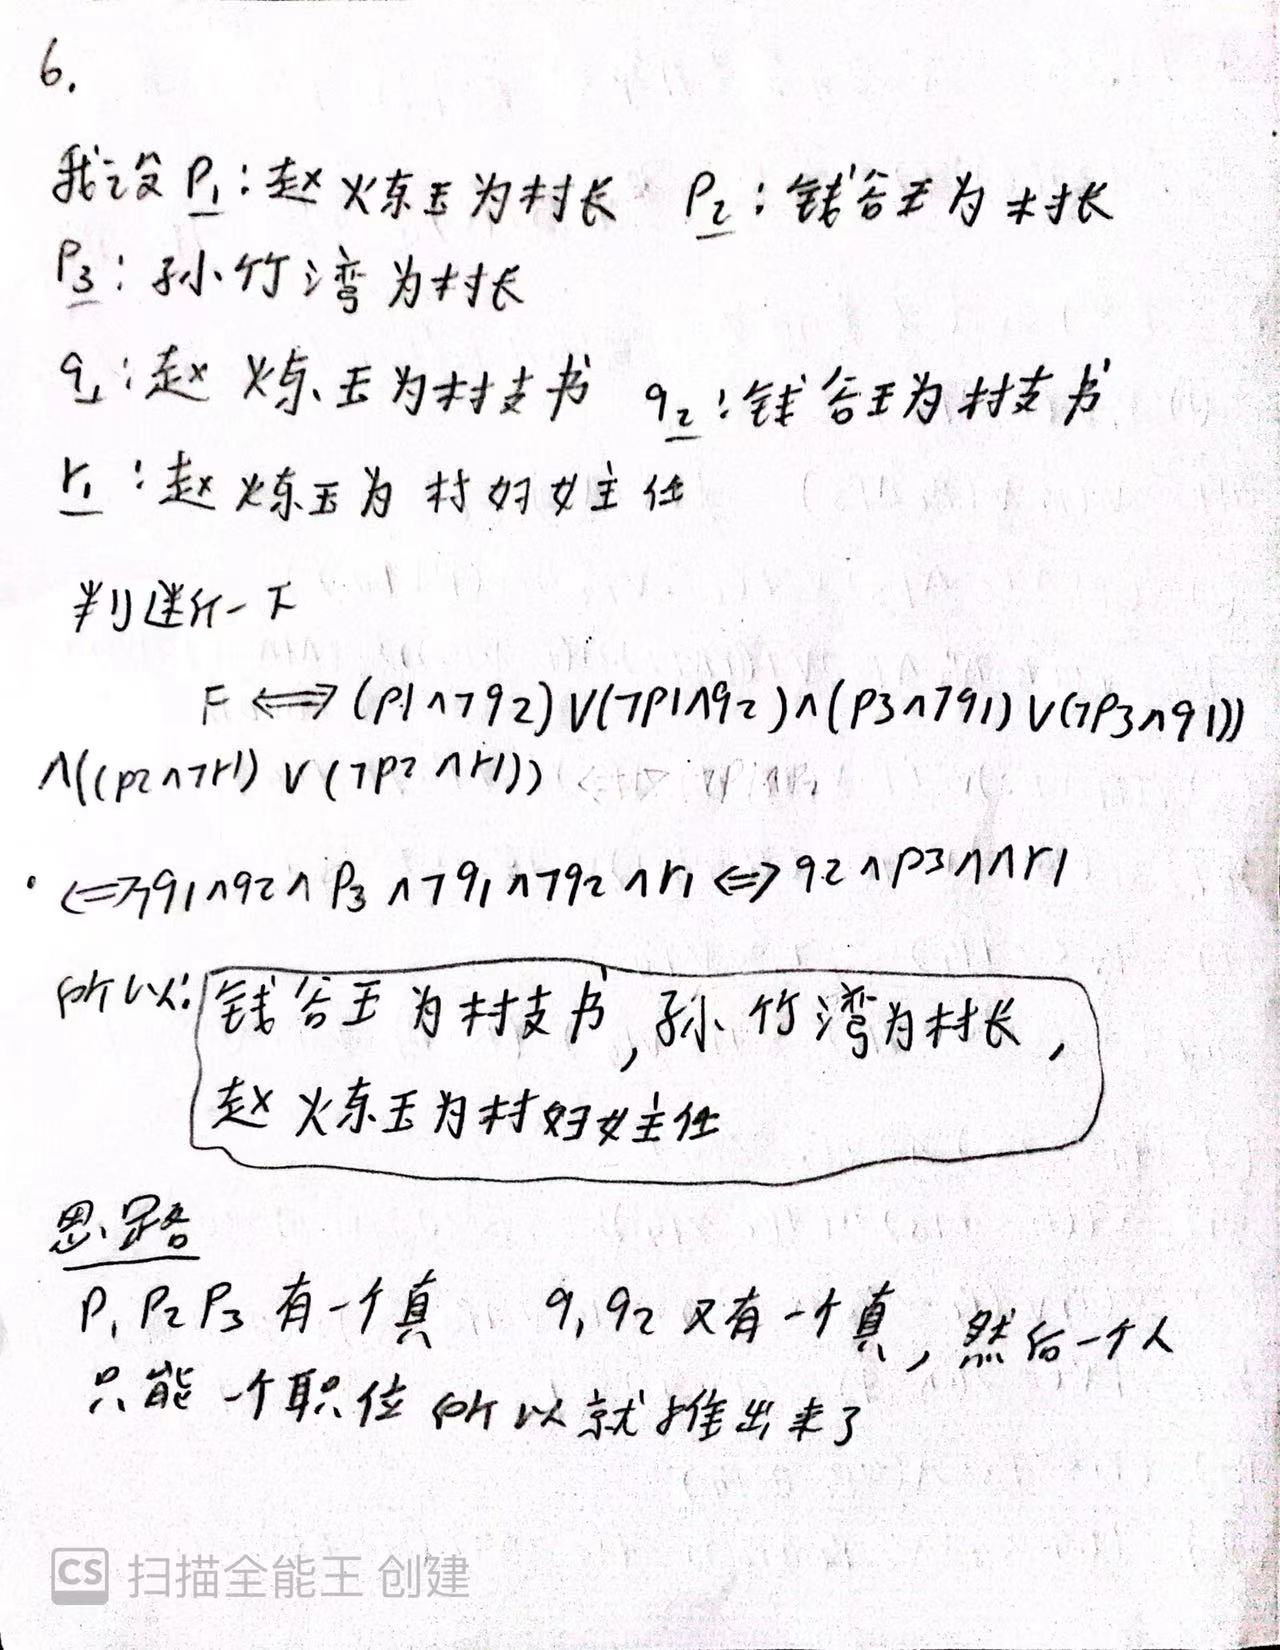 6.
我设P₁:赵炼玉为村长 P₂:钱谷玉为村长
P₃:孙竹湾为村长
q₁:赵炼玉为村支书 q₂:钱谷玉为村支书
r₁:赵炼玉为村妇女主任
判 一下
F ⟺ (p1∧¬q2)∨(¬p1∧q2)∧(p3∧¬q1)∨(¬p3∧q1))
∧((p2∧¬r1)∨(¬p2∧r1))
⟺¬q₁∧q2∧P₃∧¬q₁∧¬q₂∧r₁⟺q2∧p3∧∧r1
所以:钱谷玉为村支书,孙竹湾为村长,
赵炼玉为村妇女主任
思路
P₁P₂P₃有一个真 q₁q₂又有一个真,然后一个人
只能一个职位所以就推出来了
CS 扫描全能王 创建